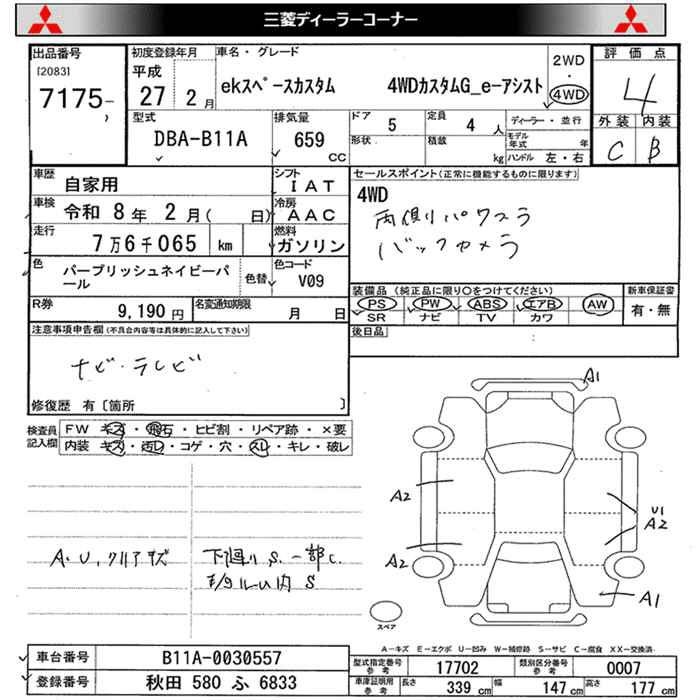 三菱ディーラーコーナー
出品番号
[2083]
7175
初度登録年月
平成
27 2月
車名・グレード
ekスペースカスタム 4WDカスタムG_e-アシスト
2WD
・
4WD
評価点
4
外装 内装
C B
型式
DBA-B11A
排気量
659
CC
ドア 5
形状
定員 4人
積載 kg
ディーラー・並行
モデル年式 年
ハンドル 左・右
車歴 自家用
シフト IAT
車検 令和 8年 2月( 日)
冷房 AAC
走行 7万6千065 km
燃料 ガソリン
色 パープリッシュネイビーパール
色替
色コード V09
R券 9,190円
名変通知期限 月 日
セールスポイント(正常に機能するものに限ります)
4WD
両側パワスラ
バックカメラ
装備品 (純正品に限り○をつけてください)
PS PW ABS エアB AW
SR ナビ TV カワ
新車保証書
有・無
後日品
注意事項申告欄(不具合内容等は具体的に記入して下さい)
ナビ・テレビ
修復歴 有〔箇所 〕
検査員記入欄
FW キズ・飛石・ヒビ割・リペア跡・×要
内装 キズ・汚レ・コゲ・穴・スレ・キレ・破レ
A・U、クリアキズ
下廻りS、一部C
A1
A2
A2
U1
A2
A1
スペア
A-キズ E-エクボ U-凹み W-補修跡 S-サビ C-腐食 XX-交換済
車台番号 B11A-0030557
登録番号 秋田 580 ふ 6833
型式指定番号 参考 17702
類別区分番号 参考 0007
車庫証明用 参考 長さ 339cm 幅 147cm 高さ 177cm